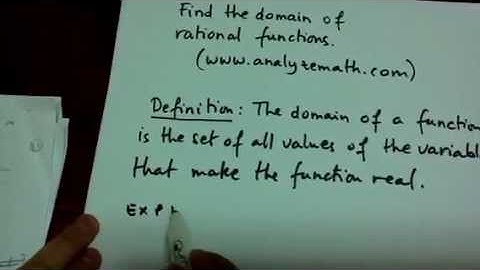 Find the domain of
rational functions.
(www.analyzemath.com)
Definition: The domain of a function
is the set of all values of the variabl
that make the function real.
Ex